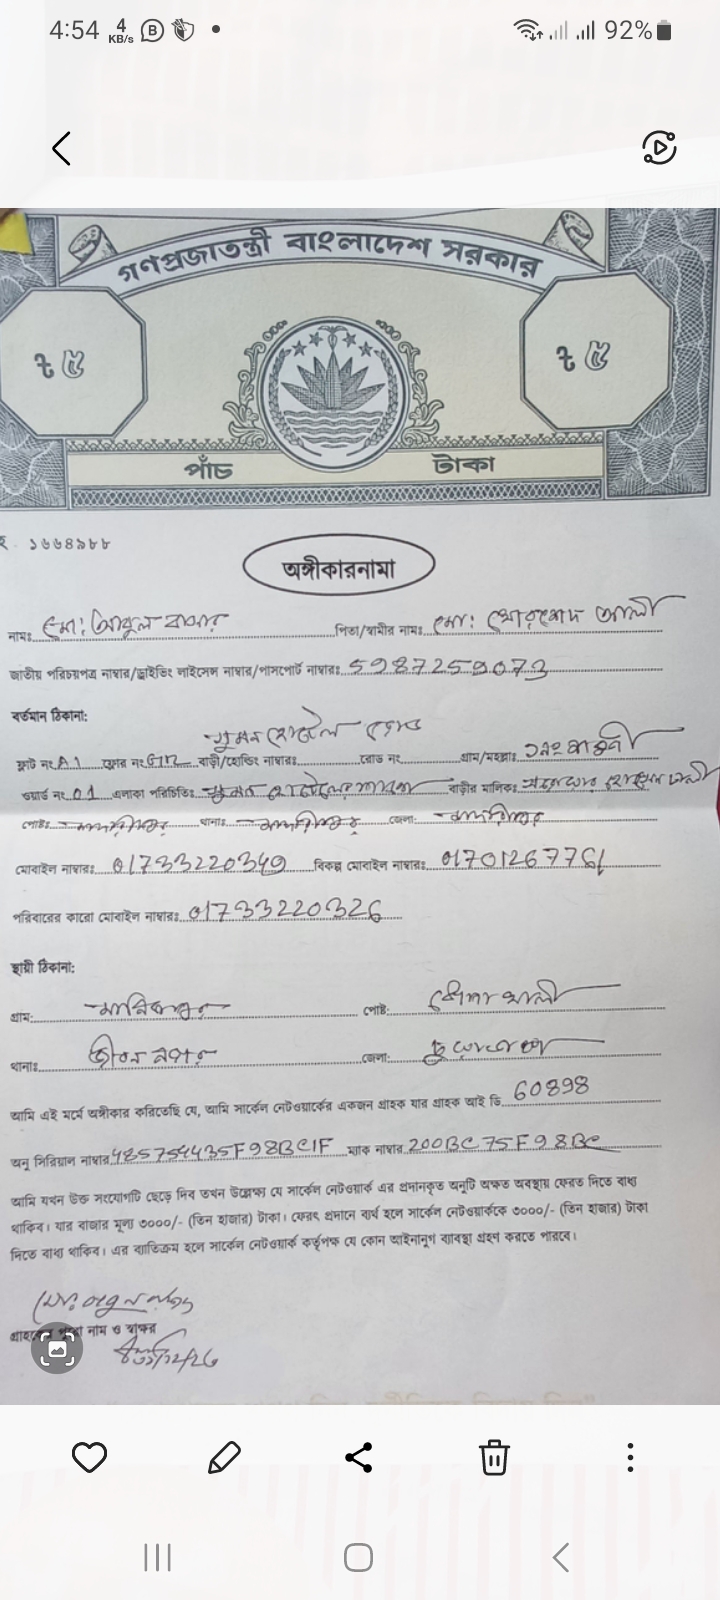 4:54 4 KB/s B 92%
গণপ্রজাতন্ত্রী বাংলাদেশ সরকার
৳ ৫ ৳ ৫
পাঁচ টাকা
১৬৬৪৯৮৮
অঙ্গীকারনামা
নামঃ মো: আবুল বাসার পিতা/স্বামীর নামঃ মো: খোরশেদ আলী
জাতীয় পরিচয়পত্র নাম্বার/ড্রাইভিং লাইসেন্স নাম্বার/পাসপোর্ট নাম্বারঃ 5987259073
বর্তমান ঠিকানা:
সুমন হোটেল রোড
ফ্লাট নং A1 ফ্লোর নং বাড়ী/হোল্ডিং নাম্বারঃ রোড নং গ্রাম/মহল্লাঃ ১নং
ওয়ার্ড নং 01 এলাকা পরিচিতিঃ সুমন হোটেলের বাড়ীর মালিকঃ
পোষ্টঃ থানাঃ জেলা:
মোবাইল নাম্বারঃ 01733220349 বিকল্প মোবাইল নাম্বারঃ 01701267761
পরিবারের কারো মোবাইল নাম্বারঃ 01733220326
স্থায়ী ঠিকানা:
গ্রাম: পোষ্ট:
থানাঃ জীবন নগর জেলা: চুয়াডাঙ্গা
আমি এই মর্মে অঙ্গীকার করিতেছি যে, আমি সার্কেল নেটওয়ার্কের একজন গ্রাহক যার গ্রাহক আই ডি 60898
অনু সিরিয়াল নাম্বার 485754435F98BC1F ম্যাক নাম্বার 200BC75F98BC
আমি যখন উক্ত সংযোগটি ছেড়ে দিব তখন উল্লেক্ষ্য যে সার্কেল নেটওয়ার্ক এর প্রদানকৃত অনুটি অক্ষত অবস্থায় ফেরত দিতে বাধ্য
থাকিব। যার বাজার মূল্য ৩০০০/- (তিন হাজার) টাকা। ফেরৎ প্রদানে ব্যর্থ হলে সার্কেল নেটওয়ার্ককে ৩০০০/- (তিন হাজার) টাকা
দিতে বাধ্য থাকিব। এর ব্যতিক্রম হলে সার্কেল নেটওয়ার্ক কর্তৃপক্ষ যে কোন আইনানুগ ব্যবস্থা গ্রহণ করতে পারবে।
নাম ও স্বাক্ষর